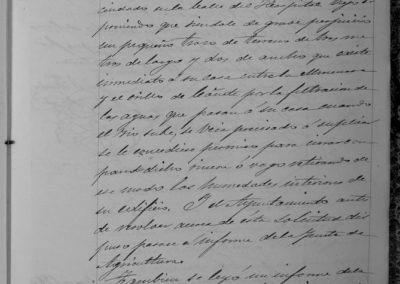 cindado en la calle del Hospital Viejo ex
poniendo que siendole de grave perjuicio
un pequeño trozo de terreno de tres me
tros de largo y dos de ancho que existe
inmediato á su casa entre la
y el orilla de por la filtracion de
las aguas que pasan á su casa cuando
el rio sube, se veia precisado á suplicar
se le concediese permiso para
dicho ó vago retirando de
ese modo las humedades interiores de
su edificio. Y el Ayuntamiento antes
de resolver acerca de esta solicitud dis
puso pasase á informe de la Junta de
Agricultura.
Tambien se leyó un informe de la